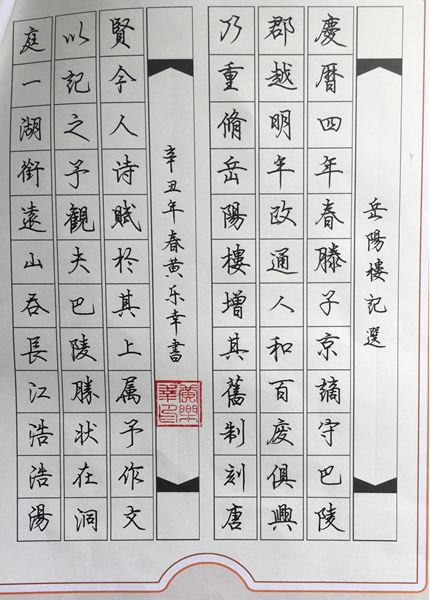 岳陽樓記選
慶曆四年春滕子京謫守巴陵
郡越明年政通人和百廢俱興
乃重脩岳陽樓增其舊制刻唐
辛丑年春黄乐幸書
賢今人诗賦於其上属予作文
以記之予觀夫巴陵勝状在洞
庭一湖銜遠山吞長江浩浩湯